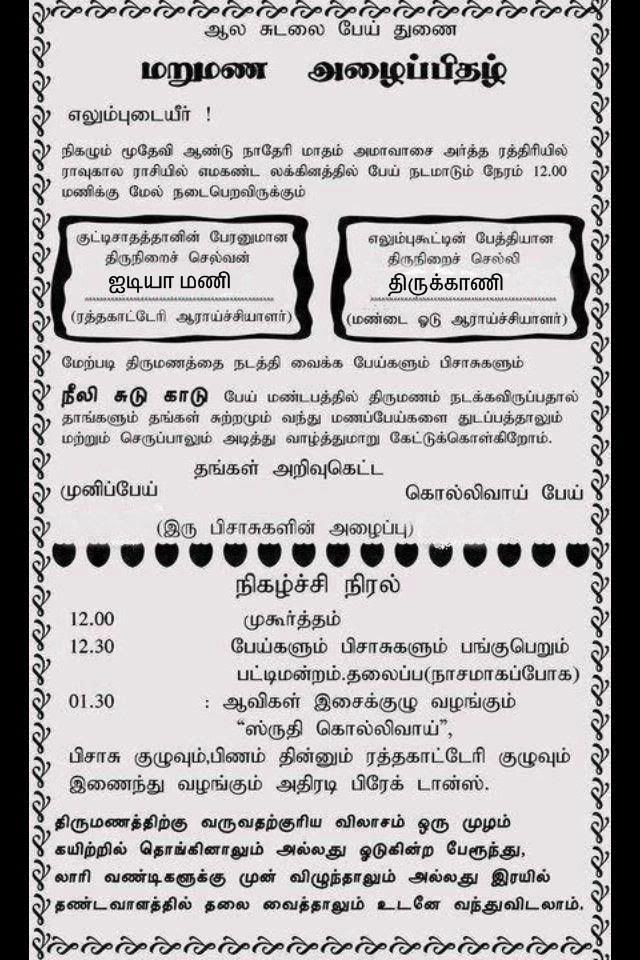 ஆல சுடலை பேய் துணை
மறுமண அழைப்பிதழ்
எலும்புடையீர் !
நிகழும் மூதேவி ஆண்டு நாதேரி மாதம் அமாவாசை அர்த்த ரத்திரியில்
ராவுகால ராசியில் எமகண்ட லக்கினத்தில் பேய் நடமாடும் நேரம் 12.00
மணிக்கு மேல் நடைபெறவிருக்கும்
குட்டிசாதத்தானின் பேரனுமான
திருநிறைச் செல்வன்
ஐடியா மணி
(ரத்தகாட்டேரி ஆராய்ச்சியாளர்)
எலும்புகூட்டின் பேத்தியான
திருநிறைச் செல்லி
திருக்காணி
(மண்டை ஓடு ஆராய்ச்சியாளர்)
மேற்படி திருமணத்தை நடத்தி வைக்க பேய்களும் பிசாசுகளும்
நீலி சுடு காடு பேய் மண்டபத்தில் திருமணம் நடக்கவிருப்பதால்
தாங்களும் தங்கள் சுற்றமும் வந்து மணப்பேய்களை துடப்பத்தாலும்
மற்றும் செருப்பாலும் அடித்து வாழ்த்துமாறு கேட்டுக்கொள்கிறோம்.
தங்கள் அறிவுகெட்ட
முனிப்பேய்
கொல்லிவாய் பேய்
(இரு பிசாசுகளின் அழைப்பு)
நிகழ்ச்சி நிரல்
12.00 முகூர்த்தம்
12.30 பேய்களும் பிசாசுகளும் பங்குபெறும்
பட்டிமன்றம்.தலைப்ப(நாசமாகப்போக)
01.30 : ஆவிகள் இசைக்குழு வழங்கும்
“ஸ்ருதி கொல்லிவாய்”,
பிசாசு குழுவும்,பிணம் தின்னும் ரத்தகாட்டேரி குழுவும்
இணைந்து வழங்கும் அதிரடி பிரேக் டான்ஸ்.
திருமணத்திற்கு வருவதற்குரிய விலாசம் ஒரு முழம்
கயிற்றில் தொங்கினாலும் அல்லது ஓடுகின்ற பேரூந்து,
லாரி வண்டிகளுக்கு முன் விழுந்தாலும் அல்லது இரயில்
தண்டவாளத்தில் தலை வைத்தாலும் உடனே வந்துவிடலாம்.